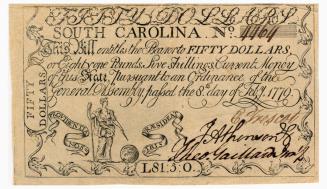 FIFTY DOLLARS
SOUTH CAROLINA. No. 4464
This Bill entitles the Bearer to FIFTY DOLLARS,
or Eighty one Pounds, Five Shillings Current Money
of this State Pursuant to an Ordinance of the
General Assembly, passed the 8th day of Feby. 1779
FIFTY DOLLARS
PROVIDENTIA NOSTRIS PRÆSIDEAT
L81:5:0.